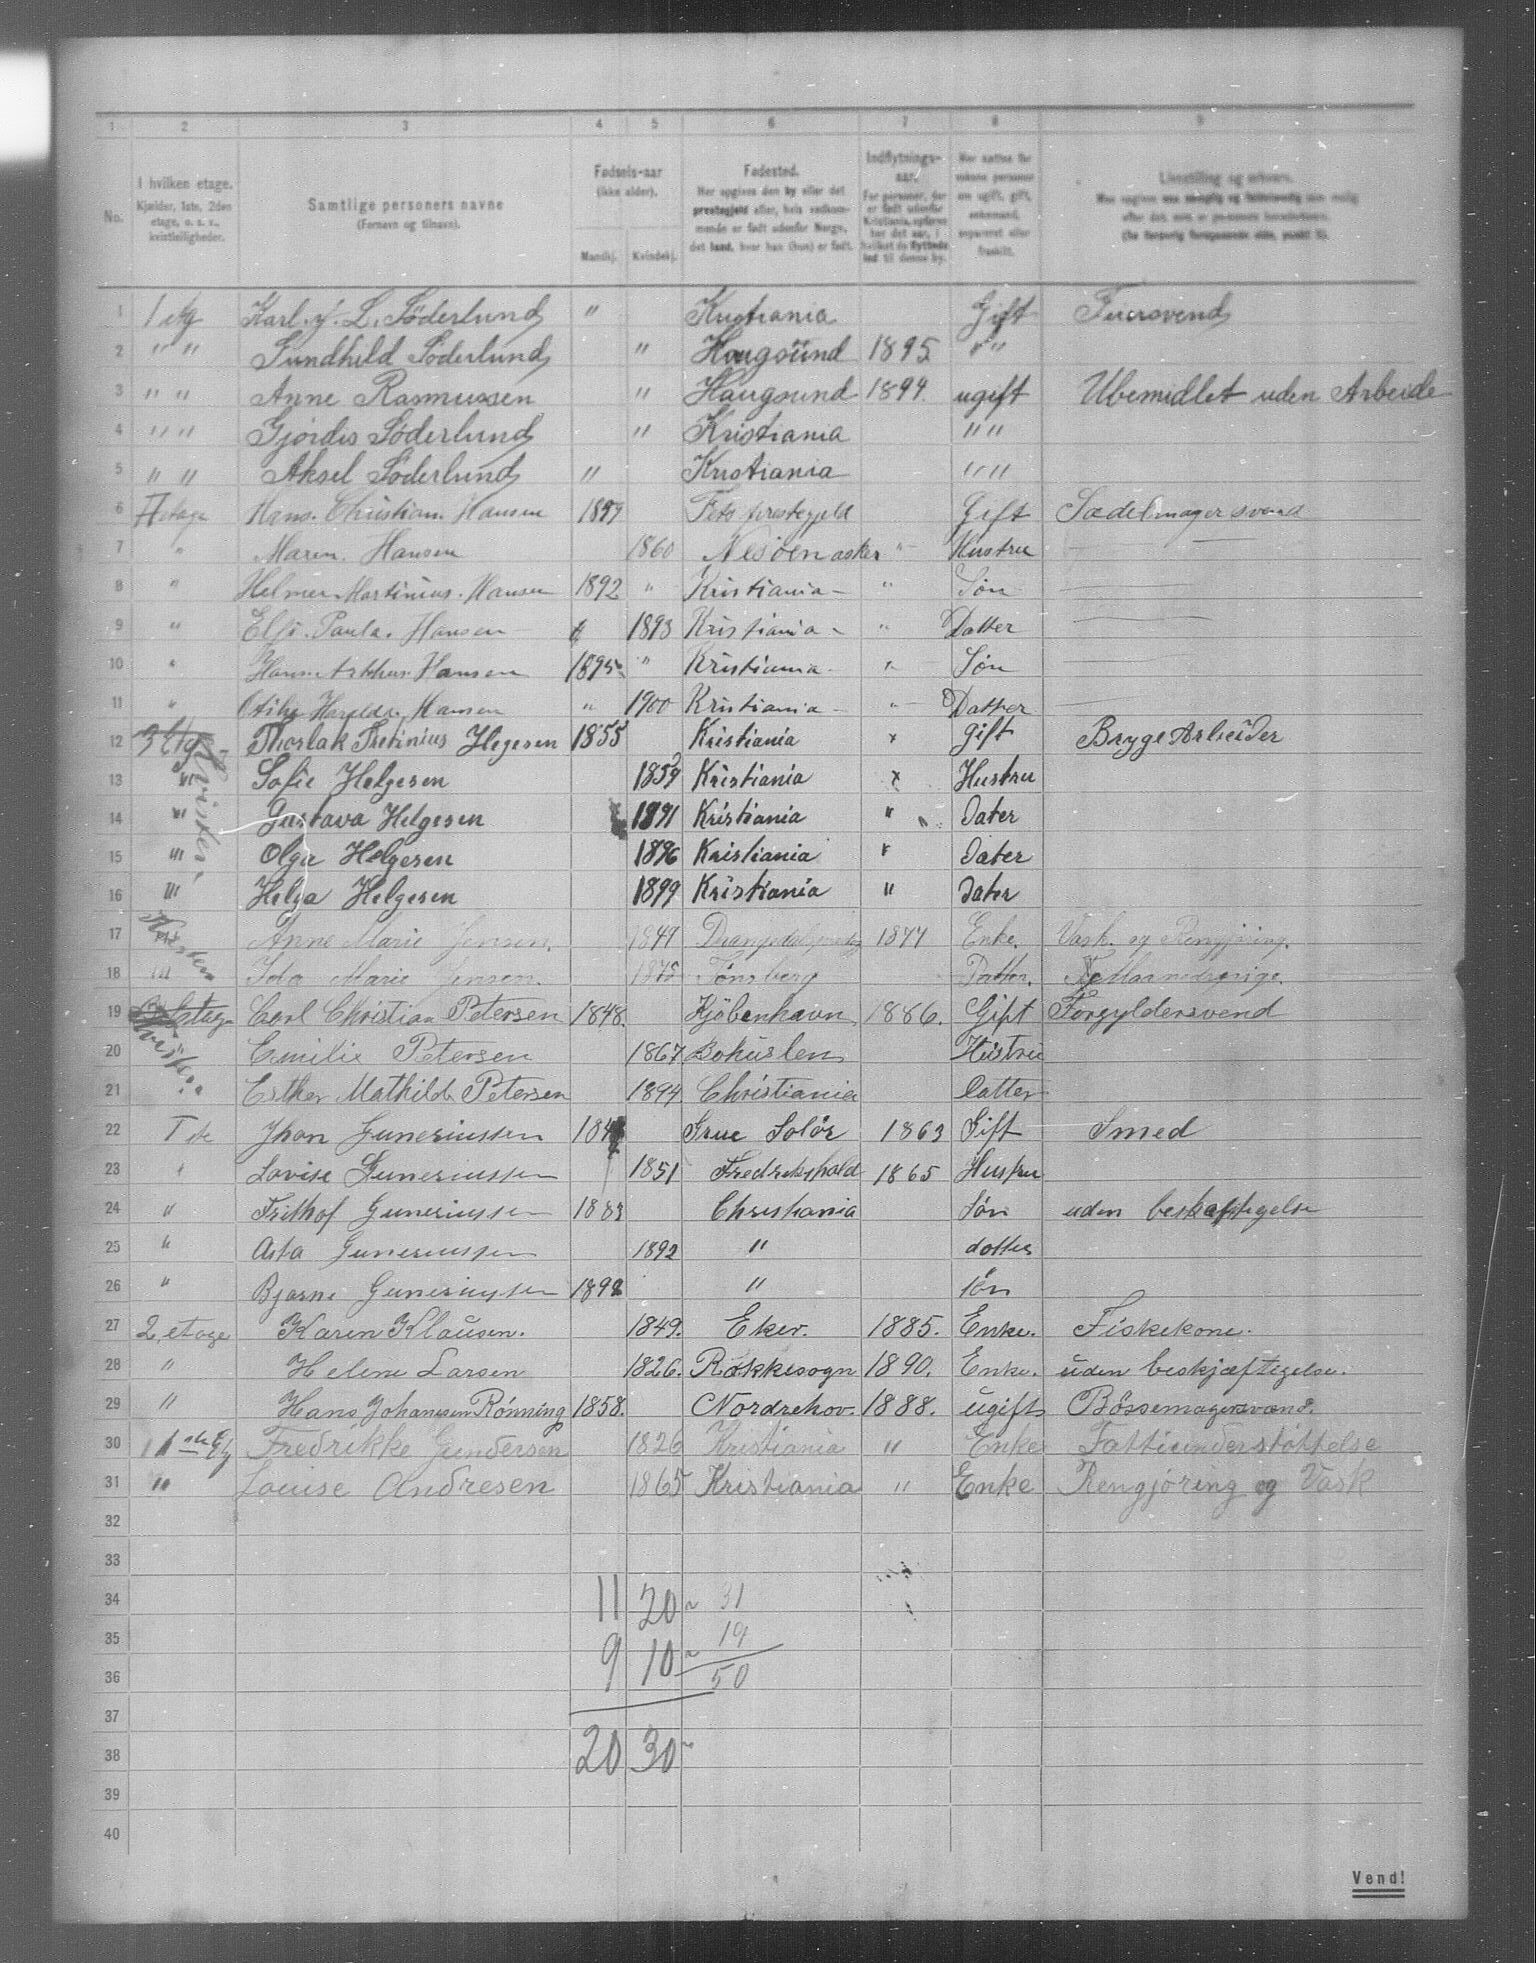 1 2 3 4 5 6 7 8 9
No.
I hvilken etage.
Kjælder, 1ste, 2den
etage, o. s. v.,
kvistleiligheder.
Samtlige personers navne
(Fornavn og tilnavn).
Fødsels-aar
(ikke alder).
Mandkj. Kvindekj.
Fødested.
Her opgives den by eller det
prestegjeld eller, hvis vedkom-
mende er født udenfor Norge,
det land, hvor han (hun) er født.
Indflytnings-
aar.
For personer, der
er født udenfor
Kristiania, opføres
her det aar, i
hvilket de flyttede
ind til denne by.
Her sættes for
voksne personer
om ugift, gift,
enkemand,
separeret eller
fraskilt.
Livsstilling og erhverv.
1 1 etg Karl. J. L. Söderlund " Kristiania Gift Feiersvend
2 " " Gundhild Söderlund " Haugsund 1895 " "
3 " " Anne Rasmussen " Haugsund 1899. ugift Ubemidlet uden Arbeide
4 " " Gjørdis Söderlund " Kristiania " "
5 " " Aksel Söderlund " Kristiania " "
6 II etage Hans. Christian. Hansen Fets prestegjeld Gift Sadelmagersvend
7 " Maren. Hansen 1860 Nesöen asker " Hustru
8 " Helmer Martinius. Hansen 1892 " Kristiania - " Søn
9 " Elfi. Paula. Hansen " 1893 Kristiania - " Datter
10 " Hansen 1895 " Kristiania - " Søn
11 " Hansen " 1900 Kristiania - " Datter
12 3 Etg Thorlak Tretinius Hegesen 1855 Kristiania x gift Bryge Arbeider
13 " Sofie Helgesen Kristiania x Hustru
14 " Gustava Helgesen 1891 Kristiania " Dater
15 " Olga Helgesen 1896 Kristiania " Dater
16 " Helga Helgesen 1899 Kristiania " Dater
17 Kvisten Anne Marie Jensen. 1849 1877 Enke. Vask. og Rengjøring.
18 " Ida Marie Jensen. Tönsberg Datter.
19 Etage Carl Christian Petersen 1848. Kjöbenhavn 1886. Gift Forgyldersvend
20 " Emilie Petersen 1867 Bohuslen Hüstru
21 " Esther Mathilde Petersen 1894 Christiania Datter
22 I ste Jhon Guneriussen Grue Solör 1863 Gift Smed
23 " Lovise Guneriussen 1851 Fredrikshald 1865 Hustru
24 " Frithof Guneriussen 1883 Christiania Søn uden beskæftigelse
25 " Asta Guneriussen 1892 " dotter
26 " Bjarne Guneriussen 1898 " søn
27 2. etage Karen Klausen. 1849. Eker. 1885. Enke. Fiskekone.
28 " Helene Larsen 1826. Rakkesogn 1890. Enke. uden beskjæftigelse.
29 " Hans Johannesen Rønning 1858. Nordrehov. 1888. ugift Bössemagersvend.
30 1 ste Etg Fredrikke Gundersen 1826 Kristiania " Enke Fattiunderstöttelse
31 " Louise Andresen 1865 Kristiania " Enke Rengjöring og Vask
32
33
34 11 20 31
35 19
36 9 10 50
37
38 20 30
39
40
Vend!